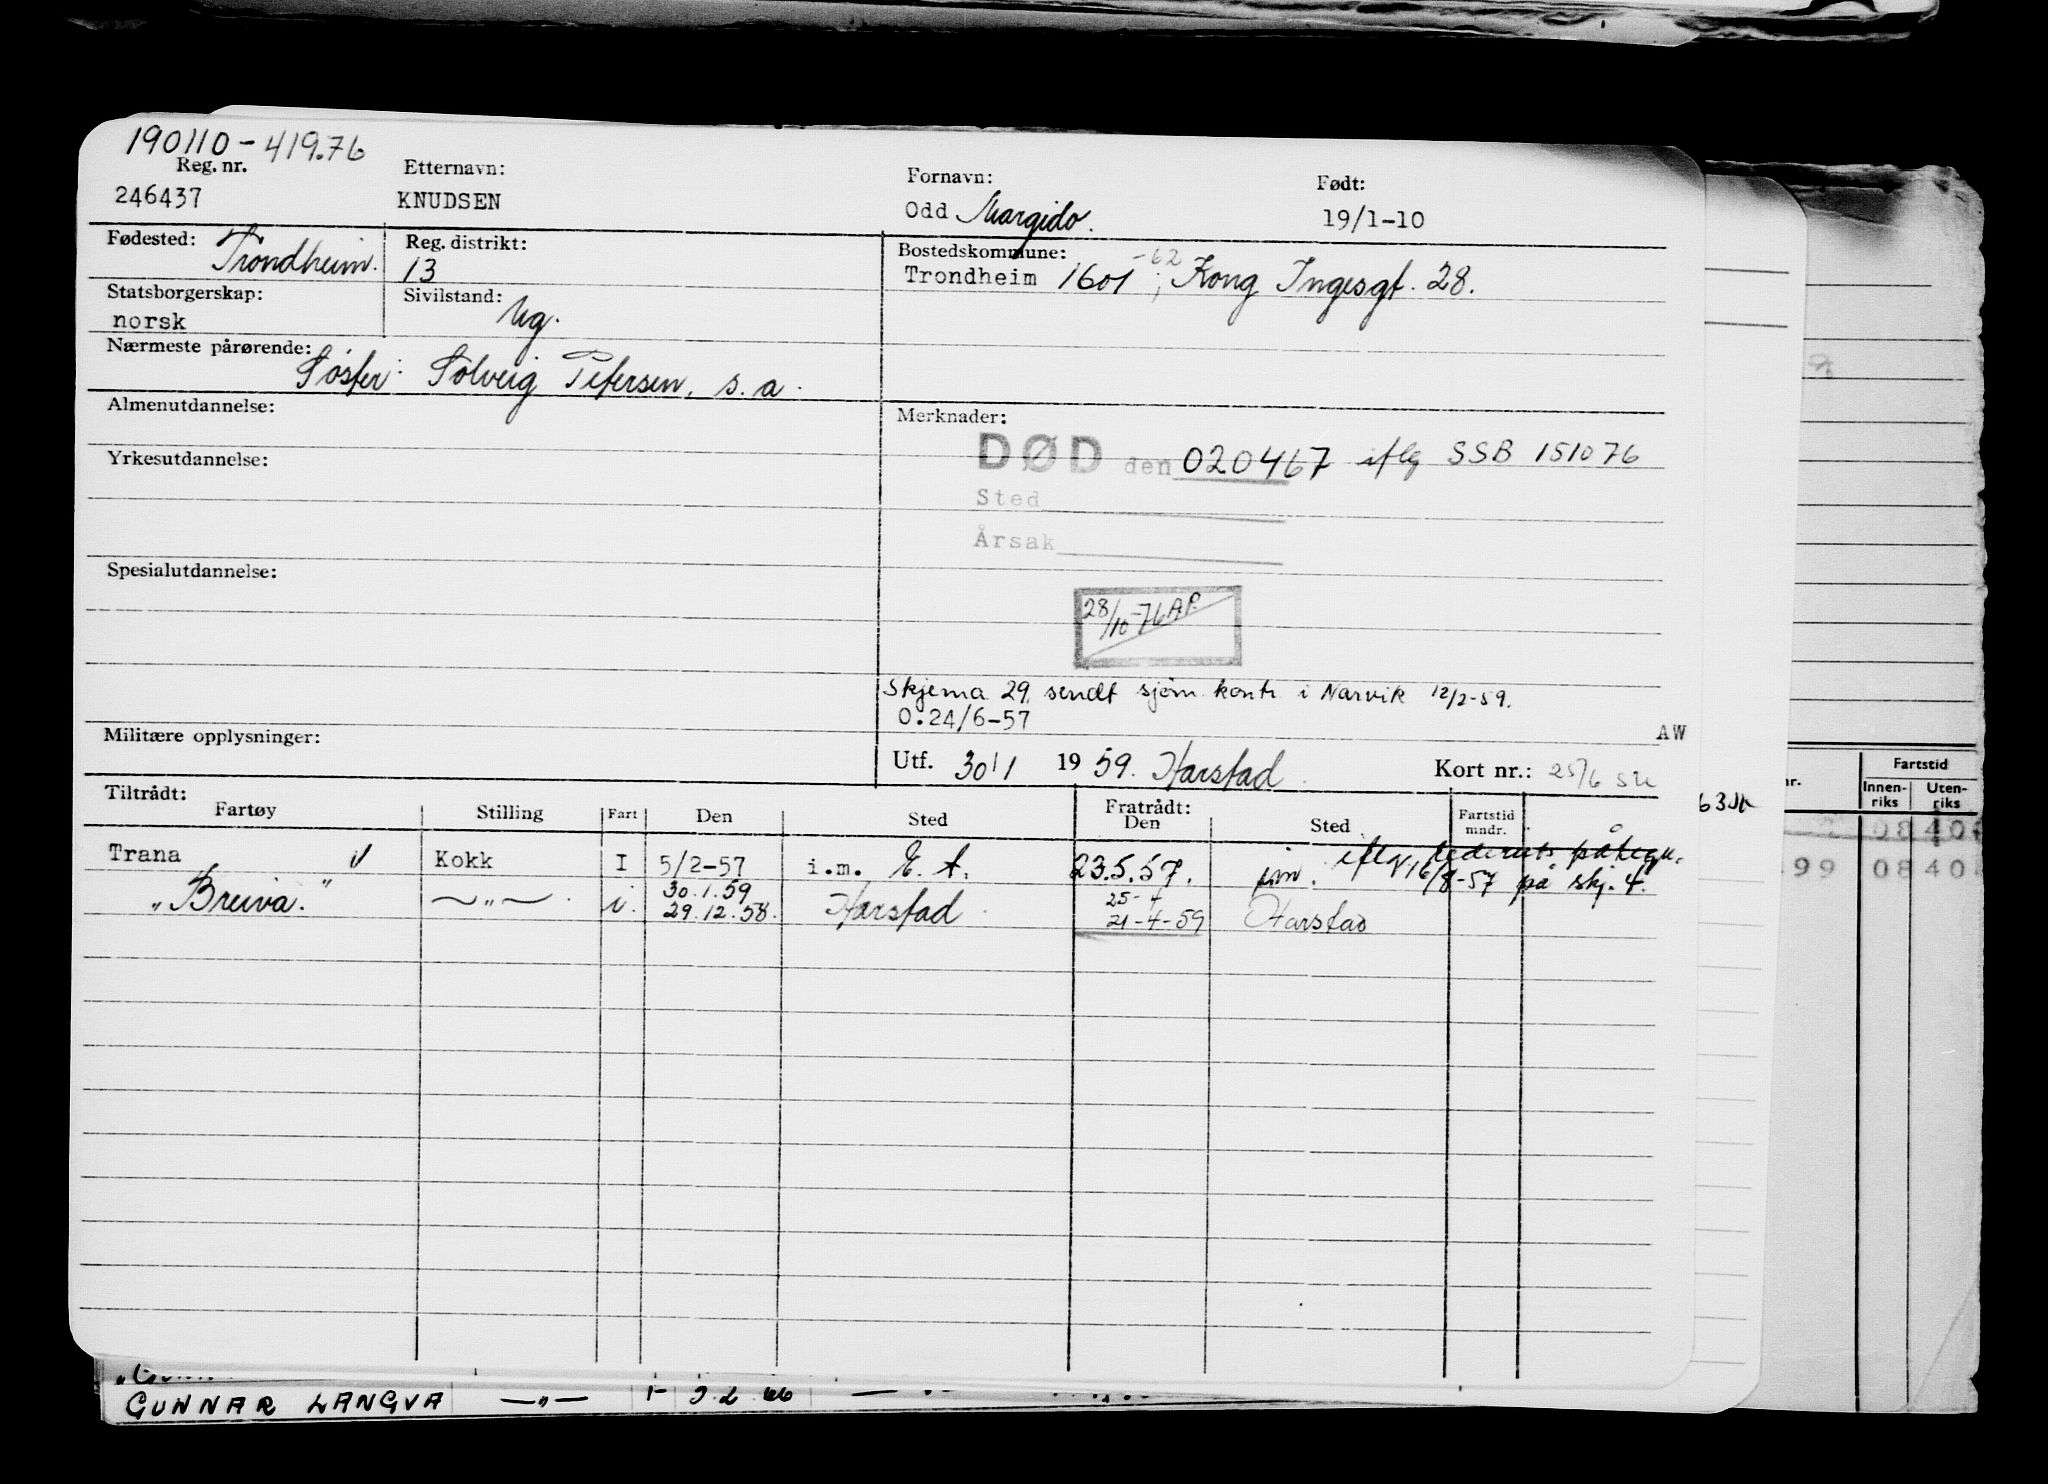 190110-419.76
Reg. nr. Etternavn: Fornavn: Født:
246437 KNUDSEN Odd Margido. 19/1-10
Fødested: Trondheim. Reg. distrikt: 13 Bostedskommune: -62
Trondheim 1601 ; Kong Ingesgt. 28.
Statsborgerskap: norsk Sivilstand: Ug.
Nærmeste pårørende: Søster: Solveig Petersen, s.a.
Almenutdannelse: Merknader:
DØD den 020467 iflg SSB 151076
Yrkesutdannelse:
Sted
Årsak
Spesialutdannelse:
28/10-76 AP.
Skjema 29. sendt sjøm. kontr i Narvik 12/2-59.
O.24/6-57 AW
Militære opplysninger: Utf. 30/1 1959. Harstad. Kort nr.: 25/6 SU
63
Tiltrådt: Fratrådt:
Fartøy Stilling Fart Den Sted Den Sted Fartstid mndr.
Trana Kokk I 5/2-57 i.m. E.A. 23.5.57. im. iflg. rederiets påtegn. 16/8-57 på skj. 4.
"Breiva." —"— . i. 30.1.59 29.12.58. Harstad. 25-4 21-4-59 Harstad
nr. Fartstid
Innen-riks Uten-riks
08 40
99 08 40
GUNNAR LANGVA —"— 66